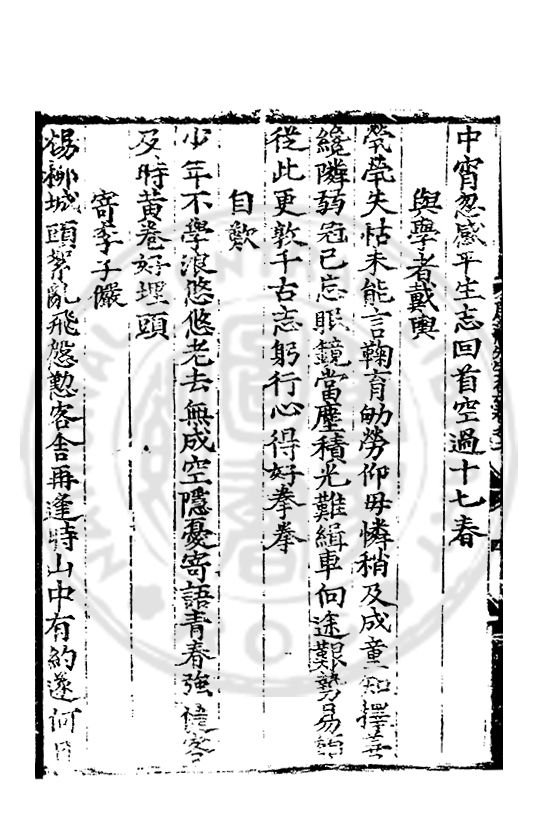 中宵忽感平生志回首空過十七春
與學者戴輿
煢煢失怙未能言鞠育劬勞仰母憐稍及成童知擇善
纔隣弱冠已忘眠鏡當塵積光難緝車向途艱勢易
從此更敦千古志躬行心得好拳拳
自歎
少年不學浪悠悠老去無成空隱憂寄語青春強健客
及時黃卷好埋頭
寄李子儼
楊柳城頭絮亂飛慇懃客舍再逢時山中有約遂何日